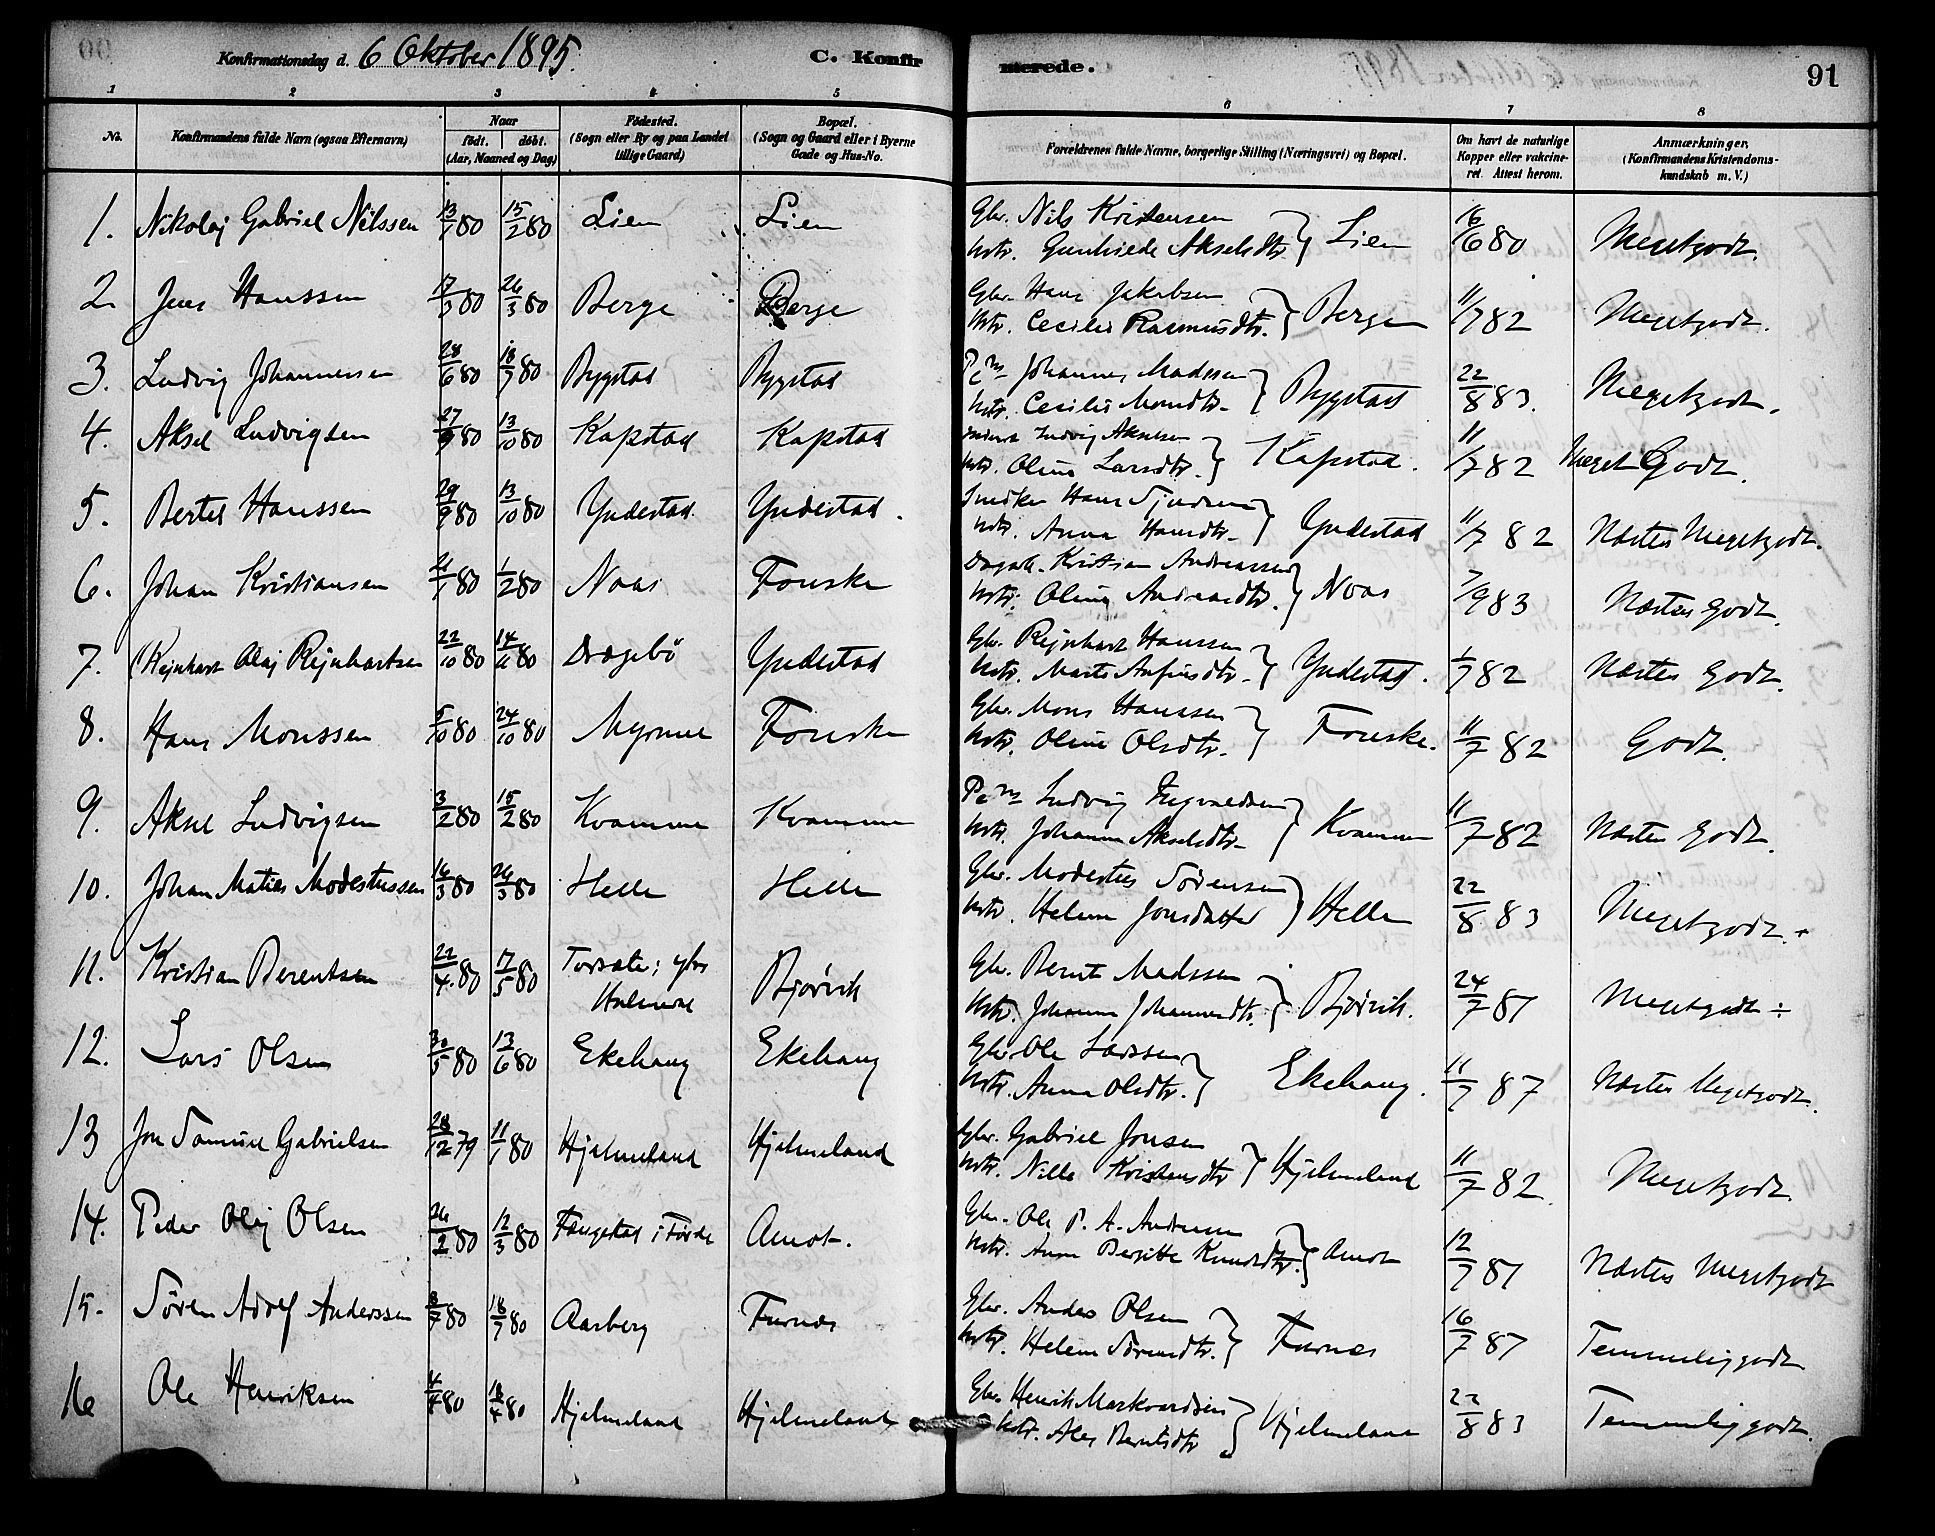 Konfirmationsdag d. 6 Oktober 1895.
C. Konfirmerede.
91
1 2 3 4 5 6 7 8
No.
Konfirmandens fulde Navn (ogsaa Efternavn)
Naar
født. døbt.
(Aar, Maaned og Dag)
Fødested.
(Sogn eller By og paa Landet
tillige Gaard)
Bopæl.
(Sogn og Gaard eller i Byerne
Gade og Hus-No.
Forældrenes fulde Navne, borgerlige Stilling (Næringsvei) og Bopæl.
Om havt de naturlige
Kopper eller vakcine-
ret. Attest herom.
Anmærkninger,
(Konfirmandens Kristendoms-
kundskab m. V.)
1. Nikolaj Gabriel Nilssen 13/1 80 15/2 80 Lien Lien Gbr. Nils Kristensen
Hstr. Akselsdtr. } Lien 16/6 80 Megetgodt.
2. Jens Hanssen 17/3 80 26/3 80 Berge Berge Gbr. Hans Jakobsen
Hstr. Cecilie Rasmusdtr. } Berge 11/7 82 Megetgodt.
3. Ludvig Johannessen 28/6 80 18/7 80 Bygstad Bygstad Pm Johannes Madssen
Hstr. Cecilie Monsdtr. } Bygstad 22/8 83. Megetgodt.
4. Aksel Ludvigsen 27/9 80 13/10 80 Kapstad Kapstad Ludvig Akselsen
Hstr. Oline Larsdtr. } Kapstad. 11/7 82 Meget Godt.
5. Bertel Hanssen 29/9 80 13/10 80 Yndestad Yndestad. Snedker Hans
Hstr. Anna Hansdtr. } Yndestad 11/7 82 Næsten Megetgodt.
6. Johan Kristiansen 21/1 80 1/2 80 Naas Fonske Dagarb. Kristian Andreassen
Hstr. Oline Andreasdtr. } Naas 7/9 83 Næsten Godt.
7. Rejnhart Olaj Rejnhartsen 22/10 80 14/11 80 Dragebö Yndestad Gbr. Rejnhart Hanssen
Hstr. Marte Anfinsdtr. } Yndestad. 1/7 82 Næsten Godt.
8. Hans Monssen 5/10 80 24/10 80 Myrene Fonske Gbr. Mons Hanssen
Hstr. Oline Olsdtr. } Fonske. 11/7 82 Godt.
9. Aksel Ludvigsen 3/2 80 15/2 80 Kvamme Kvamme Pm Ludvig Ingvaldsen
Hstr. Johanne Akselsdtr. } Kvamme 11/7 82 Næsten Godt.
10. Johan Matias Modestussen 16/3 80 26/3 80 Helle Helle Gbr. Modestus Sörensen
Hstr. Helene Jonsdatter } Helle 22/8 83 Megetgodt. ÷
11. Kristian Berentsen 22/4 80 17/5 80 Bjørvik Gbr. Bernt Madssen
Hstr. Johanne Johannesdtr. } Bjørvik. 24/7 81 Megetgodt ÷
12. Lars Olsen 30/5 80 13/6 80 Ekehaug Ekehaug Gbr. Ole Larssen
Hstr. Anna Olsdtr. } Ekehaug. 11/7 87 Næsten Megetgodt.
13 Jon Samuel Gabrielsen 28/12 79 11/1 80 Hjelmeland Hjelmeland Gbr. Gabriel Jonsen
Hstr. Nille Kristensdtr } Hjelmeland 11/7 82. Megetgodt.
14. Peder Olaj Olsen 26/2 80 12/3 80 i Førde Amot. Gbr. Ole P. A. Andersen
Hstr. Anne Bergitte Knudsdtr. } Amot 12/7 81 Næsten Megetgodt
15. Sören Adolf Anderssen 8/7 80 18/7 80 Aarberg Furnes Gbr. Anders Olsen
Hstr. Helene Sörensdtr. } Furnes 16/7 87 Temmeliggodt
16 Ole Henriksen 4/4 80 18/4 80 Hjelmeland Hjelmeland Gbr. Henrik Markvardsen
Hstr. Ales Berntsdtr } Hjelmeland 22/8 83 Temmeliggodt.